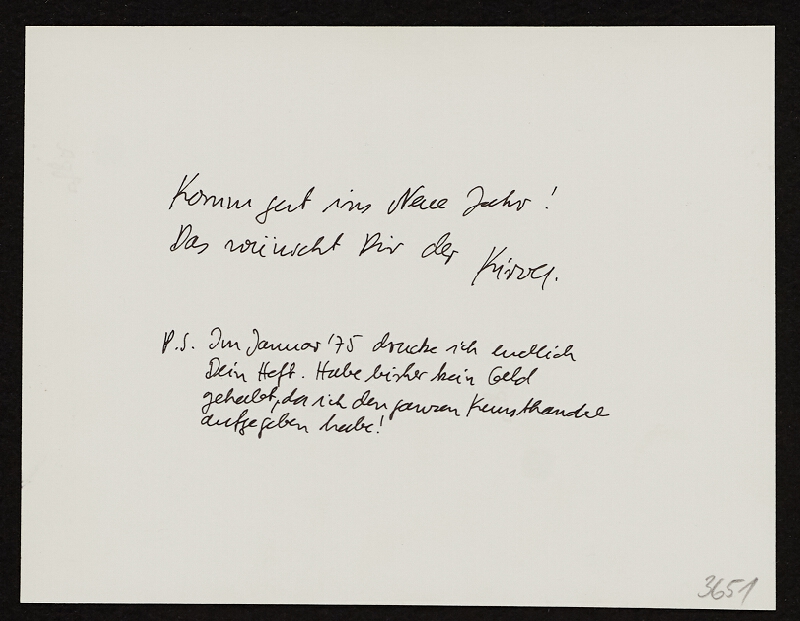 Komm gut ins Neue Jahr!
Das wünscht Dir der
P.S. Im Januar '75 drucke ich endlich
Dein Heft. Habe bisher kein Geld
gehabt, da ich den ganzen Kunsthandel
aufgegeben habe!
3651